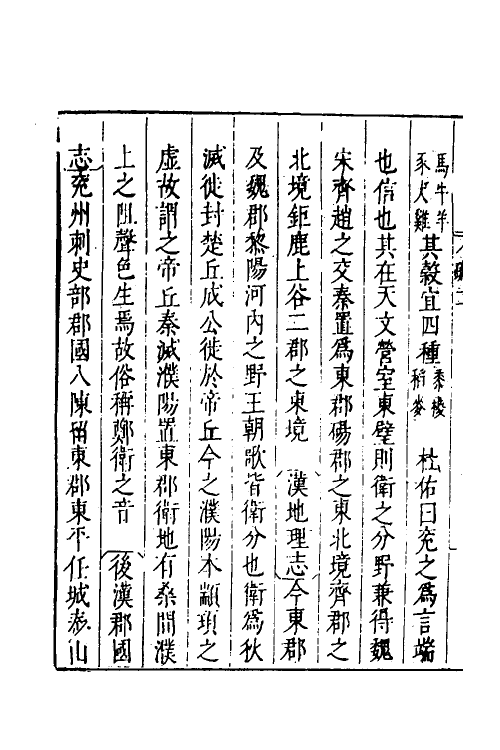 馬牛羊豕犬雞其穀宜四種黍稷稻麥　杜佑曰兖之爲言端
也信也其在天文營室東壁則衛之分野兼得魏
宋齊趙之交秦置爲東郡碭郡之東北境齊郡之
北境鉅鹿上谷二郡之東境　漢地理志今東郡
及魏郡黎陽河內之野王朝歌皆衛分也衛爲狄
滅徙封楚丘成公徙於帝丘今之濮陽本顓頊之
虛故謂之帝丘秦滅濮陽置東郡衛地有桑間濮
上之阻聲色生焉故俗稱鄭衛之音　後漢郡國
志兖州刺史部郡國八陳留東郡東平任城泰山